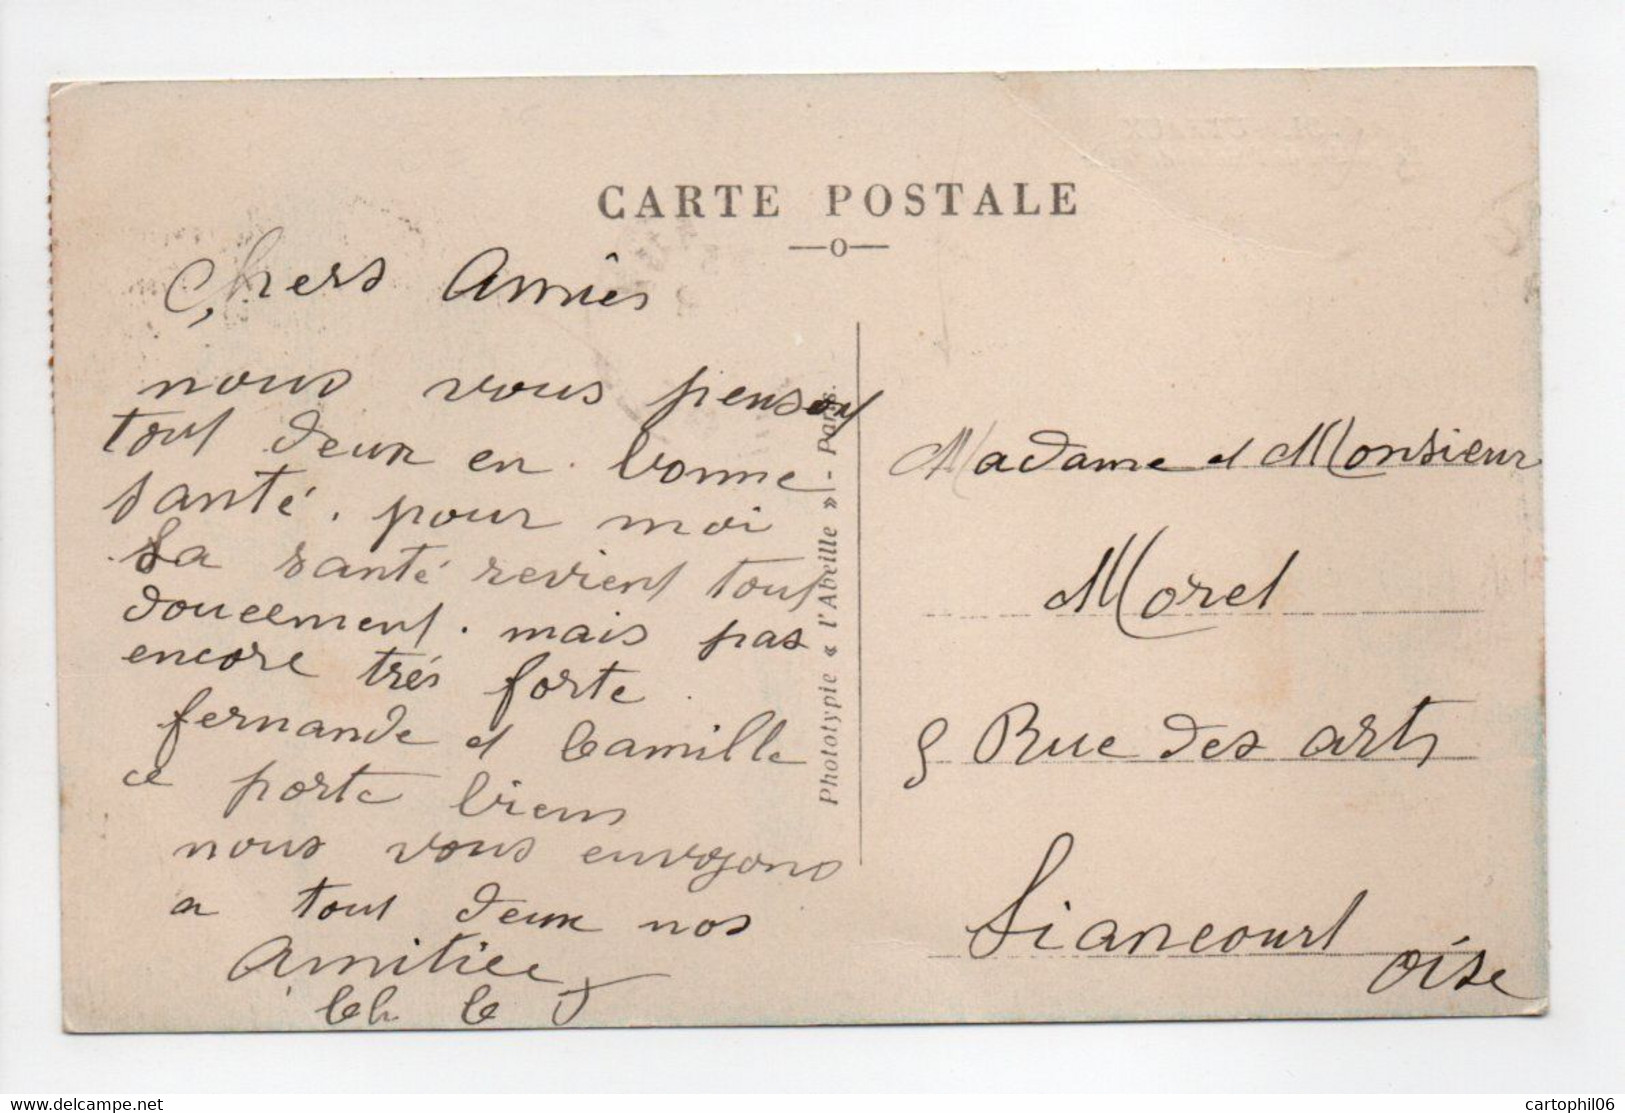 CARTE POSTALE
Chers Amiês
nous vous penson
tout deux en bonne
santé. pour moi
La santé revient tout
doucement. mais pas
encore très forte.
fernande et Camille
ce porte biens
nous vous envoyons
a tout deux nos
Amitiee
Ch C
Photótypie « l'Abeille » - Paris.
Madame et Monsieur
Morel
9 Rue des arts
Liancourt
Oise
cartophil06